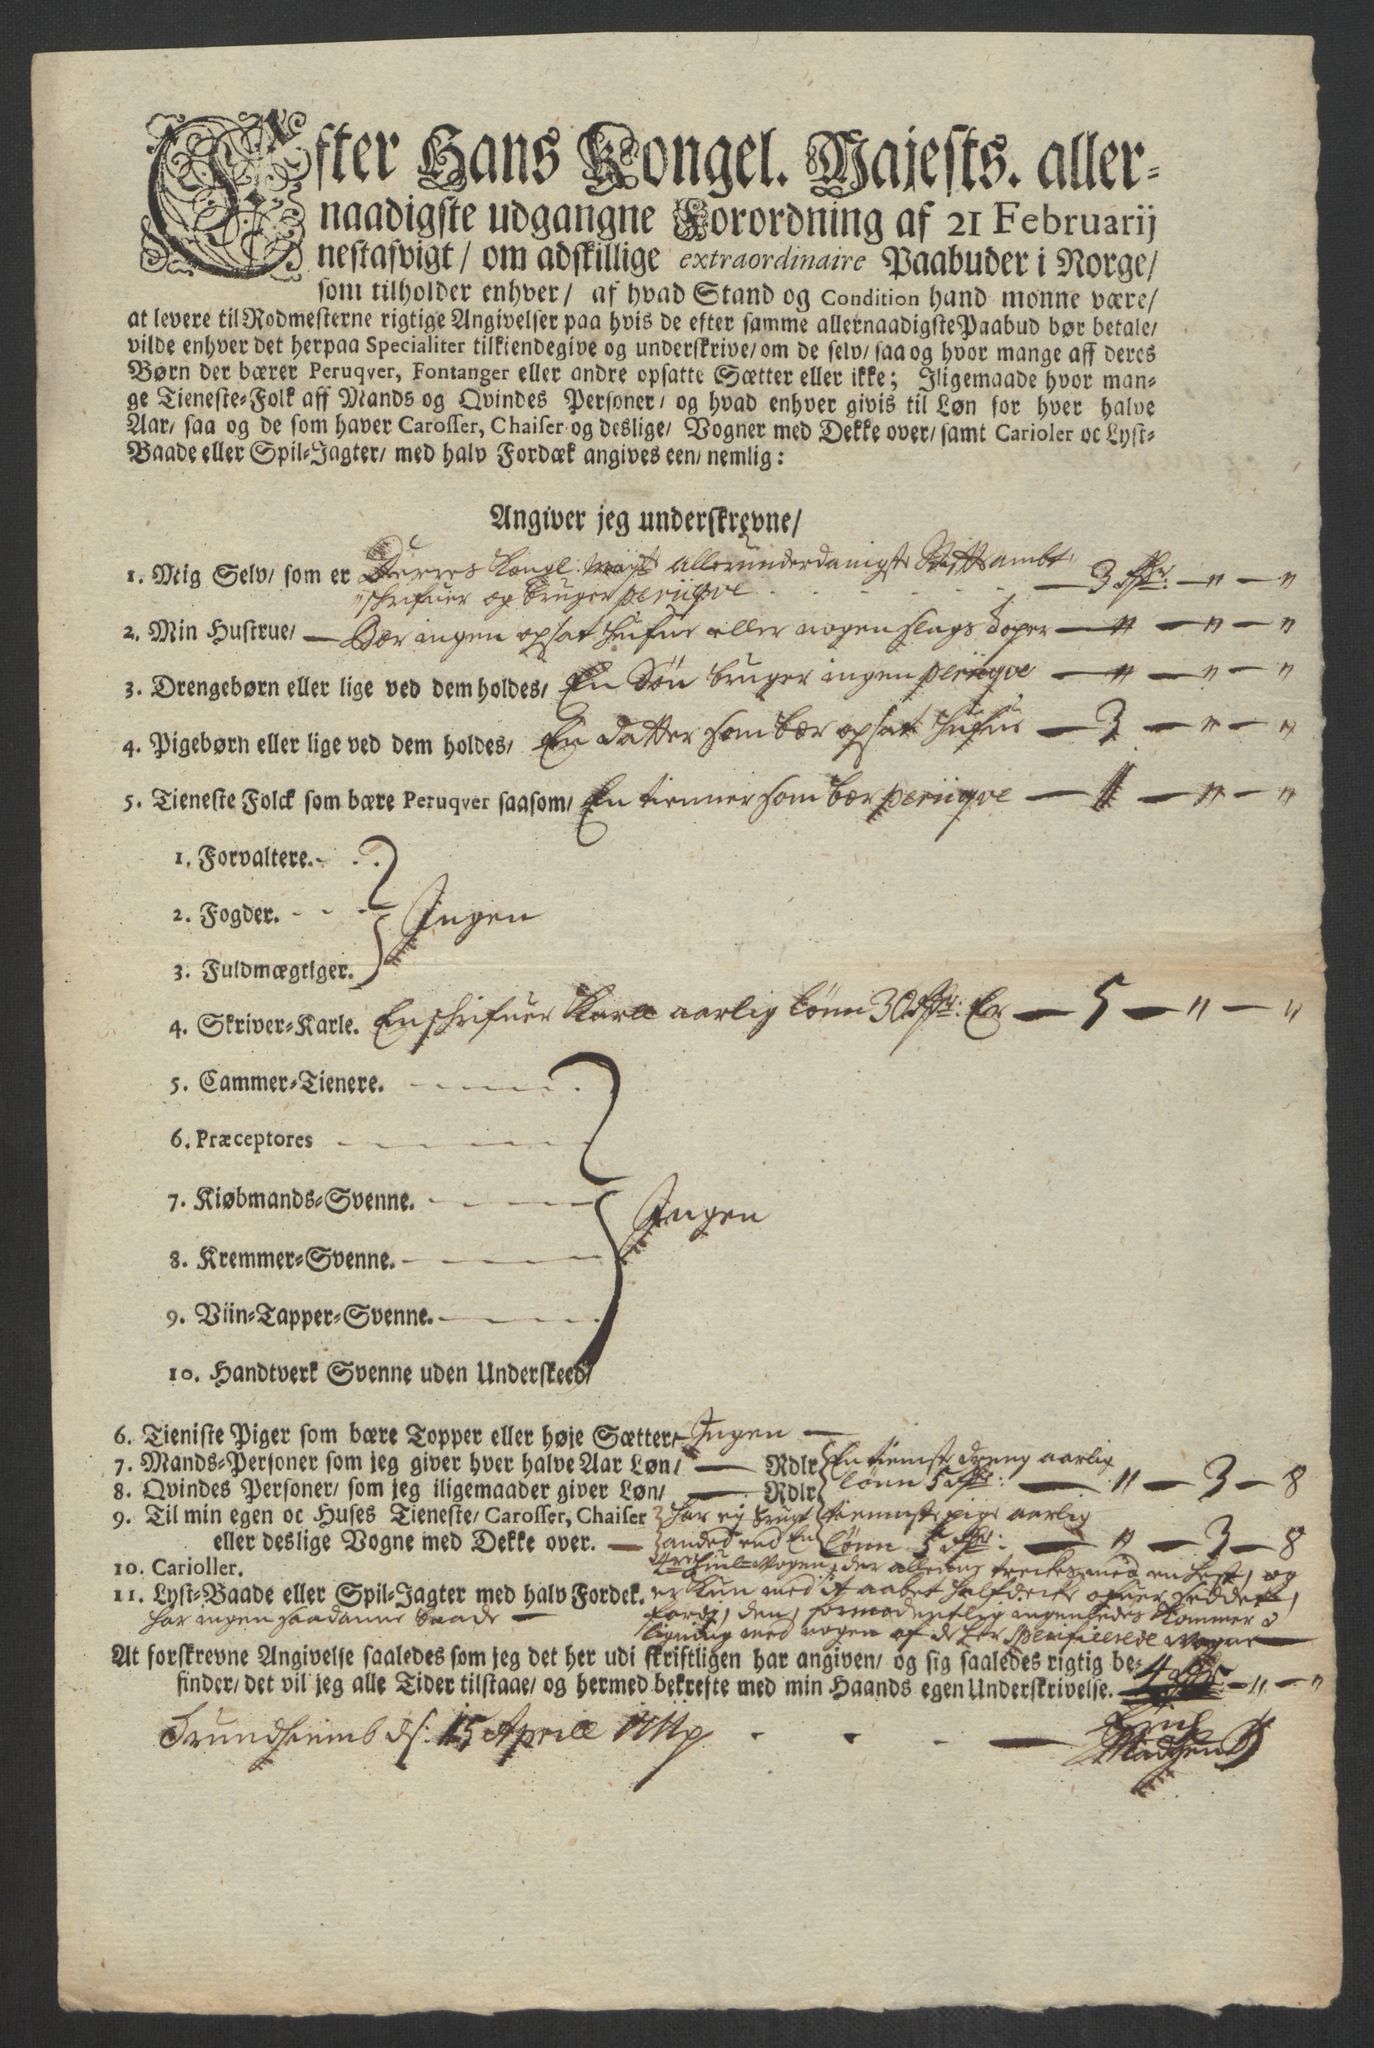 Efter Hans Kongel. Majests. aller-
naadigste udgangne Forordning af 21 Februarij
nestafvigt/ om adskillige extraordinaire Paabuder i Norge/
som tilholder enhver/ af hvad Stand og Condition hand monne være/
at levere til Rodmesterne rigtige Angivelser paa hvis de efter samme allernaadigste Paabud bør betale/
vilde enhver det herpaa Specialiter tilkiendegive og underskrive/ om de selv/ saa og hvor mange aff deres
Børn der bærer Peruqver, Fontanger eller andre opsatte Sætter eller ikke; Iligemaade hvor man-
ge Tieneste-Folk aff Mands og Qvindes Personer/ og hvad enhver givis til Løn for hver halve
Aar/ saa og de som haver Carosser, Chaiser og deslige/ Vogner med Dekke over/ samt Carioler oc Lyst-
Baade eller Spil-Jagter/ med halv Fordæk angives een/ nemlig:
Angiver jeg underskrevne/
1. Mig Selv/ som er Derres Kongl: Mayts allerunderdanigste Stiftambt
schrifuer og bruger periqve — 3 — " — "
2. Min Hustrue/ — Bær ingen opsat hufue eller nogen slags — " — " — "
3. Drengebørn eller lige ved dem holdes/ En Søn bruger ingen periiqve — " — " — "
4. Pigebørn eller lige ved dem holdes/ En datter som bær opsat hufue — 3 — " — "
5. Tieneste Folck som bære Peruqver saasom/ En tienner som bær periiqve — 1 — " — "
1. Forvaltere.
2. Fogder. Ingen
3. Fuldmægtiger.
4. Skriver-Karle. En schrifuer Karll aarlig lønn 30 Er — 5 — " — "
5. Cammer-Tienere.
6. Præceptores
7. Kiøbmands-Svenne. Ingen
8. Kremmer-Svenne.
9. Viin-Tapper-Svenne.
10. Handtverk Svenne uden Underskeed/
6. Tieniste Piger som bære Topper eller høje Sætter/ Ingen —
7. Mands-Personer som jeg giver hver halve Aar Løn/ — Rdlr En tienniste dreng aarlig
lønn 5 — " — 3 — 8
8. Qvindes Personer/ som jeg iligemaader giver Løn/ — Rdlr
9. Til min egen oc Huses Tieneste/ Carosser, Chaiser har ej brugt tienniste pige aarlig
eller deslige Vogne med Dekke over. — andet end En lønn 5 — " — 3 — 8
10. Carioller. Huul Vogen, der allene treckes med en hest, og
11. Lyst-Baade eller Spil-Jagter med halv Fordek. er kun med it aabet halfdecke ofuer seddet,
har ingen saadanne baade — fordj den formodentlig ingenledes kommer i
ligning med nogen af de her specificerede Vogne —
At forskrevne Angivelse saaledes som jeg det her udi skriftligen har angiven/ og sig saaledes rigtig be-
finder/ det vil jeg alle Tider tilstaae/ og hermed bekrefte med min Haands egen Underskrivelse. — " — "
Trundhiemb ds: 15 Aprill 1711
Erich
Madsen